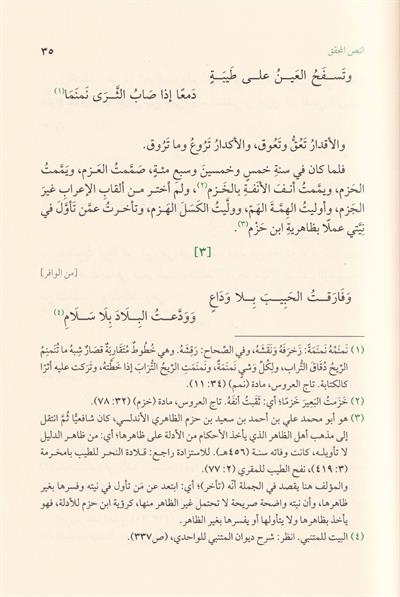 النص المحقق
٣٥
وتَسفَحُ العَينُ على طَيبَةٍ
دَمعًا إذا صَابُ الثَّرَى نَمنَمَا(١)
والأقدارُ تَعُقُّ وتَعُوق، والأكدارُ تَرُوعُ وما تَرُوق.
فلما كان في سنةِ خمسٍ وخمسينَ وسبعِ مئةٍ، صَمَّمتُ العَزم، ويَمَّمتُ
الحَزم، ويممتُ أنفَ الأنَفةِ بالخَزم(٢)، ولم أختر من ألقابِ الإعرابِ غيرَ
الجَزم، وأوليتُ الهِمَّةَ الهَمّ، وولَّيتُ الكَسَلَ الهَزم، وتأخرتُ عمَّن تَأوَّل في
نِيَّتي عملًا بظاهريةِ ابن حَزْم(٣).
[٣]
[من الوافر]
وَفَارَقتُ الحَبِيبَ بِلا وَدَاعٍ
وَوَدَّعتُ البِلَادَ بِلَا سَلَامِ(٤)
(١) نَمنَمَهُ نَمنَمَةً: زَخرَفَهُ ونَقَشَهُ، وفي الصّحاح: رَقَشَهُ. وهي خُطُوطٌ مُتَقَارِبَةٌ قصَارٌ شِبهُ ما تُنَمنِمُ
الرّيحُ دُقَاقَ التُّراب، ولِكُلِّ وَشيٍ نَمنَمَةٌ، ونَمنَمَتِ الرّيحُ التُّرَابَ إذا خَطَّتهُ، وتَرَكت عليه أثرًا
كالكتابة. تاج العروس، مادة (نمم) (٣٤: ١١).
(٢) خَزَمتُ البَعِيرَ خَزمًا؛ أي: ثَقَبتُ أنفَهُ. تاج العروس، مادة (خزم) (٣٢: ٧٨).
(٣) هو أبو محمد علي بن أحمد بن سعيد بن حزم الظاهري الأندلسي، كان شافعيًّا ثُمَّ انتقل
إلى مذهب أهل الظاهر الذي يأخذ الأحكام من الأدلة على ظاهرها؛ أي: من ظاهر الدليل
لا تأويله، كانت وفاته سنة (٤٥٦هـ). للاستزادة راجع: قلادة النحر للطيب بامخرمة
(٣: ٤١٩)، نفح الطيب للمقري (٢: ٧٧).
والمؤلف هنا يقصد في الجملة أنَّه (تأخر)؛ أي: ابتعد عن مَن تأول في نيته وفسرها بغير
ظاهرها، وأن نيته واضحة صريحة لا تحتمل غير الظاهر منها، كرؤية ابن حزم للأدلة، فهو
يأخذ بظاهرها ولا يتأولها أو يفسرها بغير الظاهر.
(٤) البيت للمتنبي. انظر: شرح ديوان المتنبي للواحدي، (ص٣٣٧).